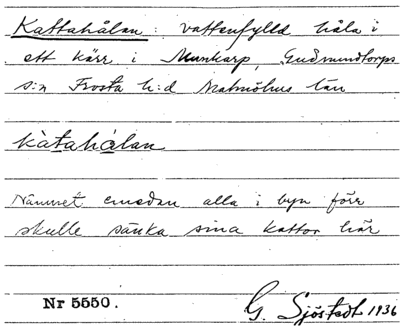 Kattahålan: vattenfylld håla i
ett kärr i Munkarp, Gudmundtorps
s:n Frosta h:d Malmöhus län
kàtahálan
Namnet emedan alla i byn förr
skulle sänka sina kattor här
Nr 5550.
G. Sjöstedt 1936